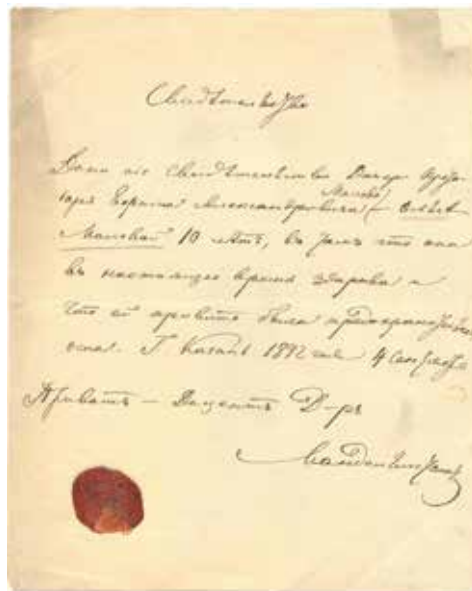 Свидѣтельство
Дано сіе свидѣтельство
Александровича Малева Ольгѣ
Малевой 10 лѣтъ, въ томъ что она
въ настоящее время здорова и
что ей привита была предохранительная
оспа. Г. Казань 1892 года 4 Сентября
Приватъ – Доцентъ Д-ръ